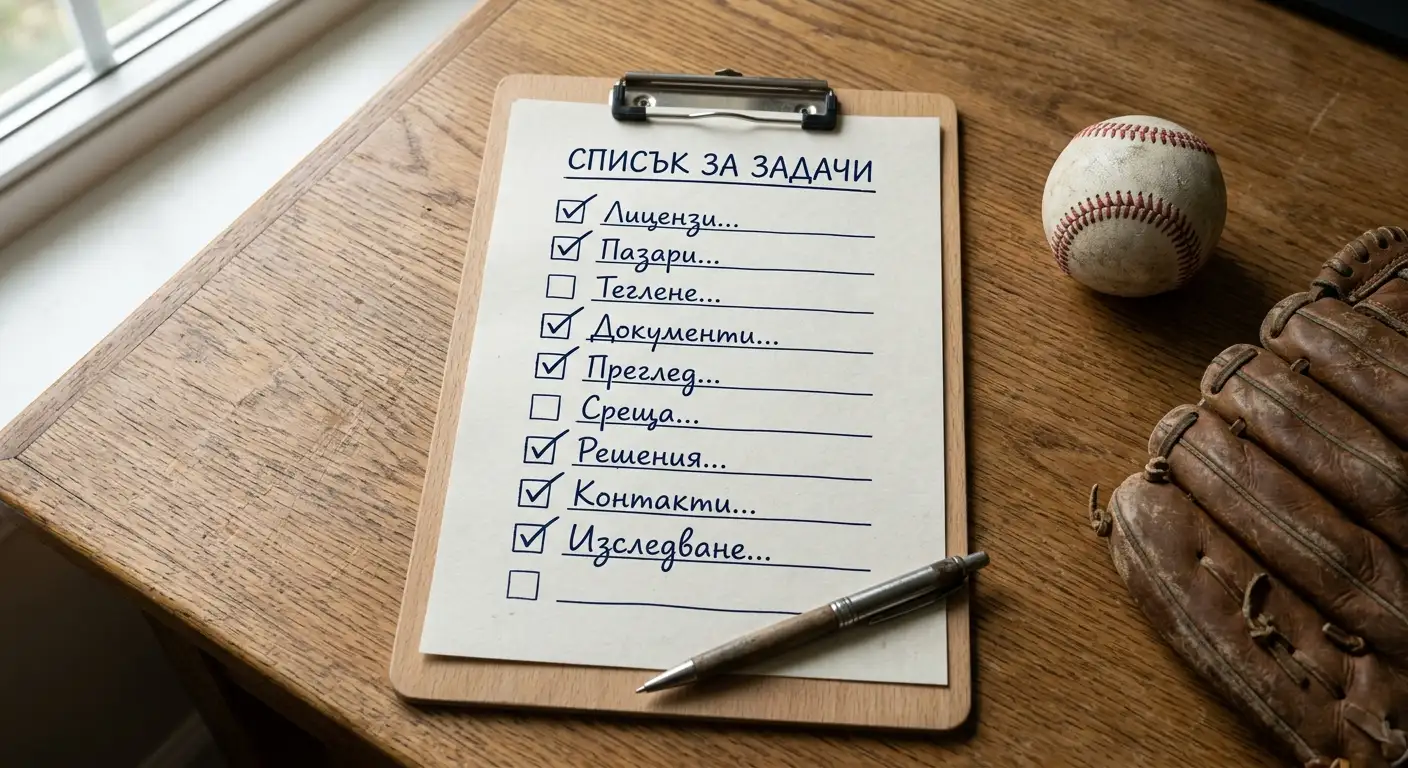 СПИСЪК ЗА ЗАДАЧИ
Лицензи...
Пазари...
Теглене...
Документи...
Преглед...
Среща...
Решения...
Контакти...
Изследване...